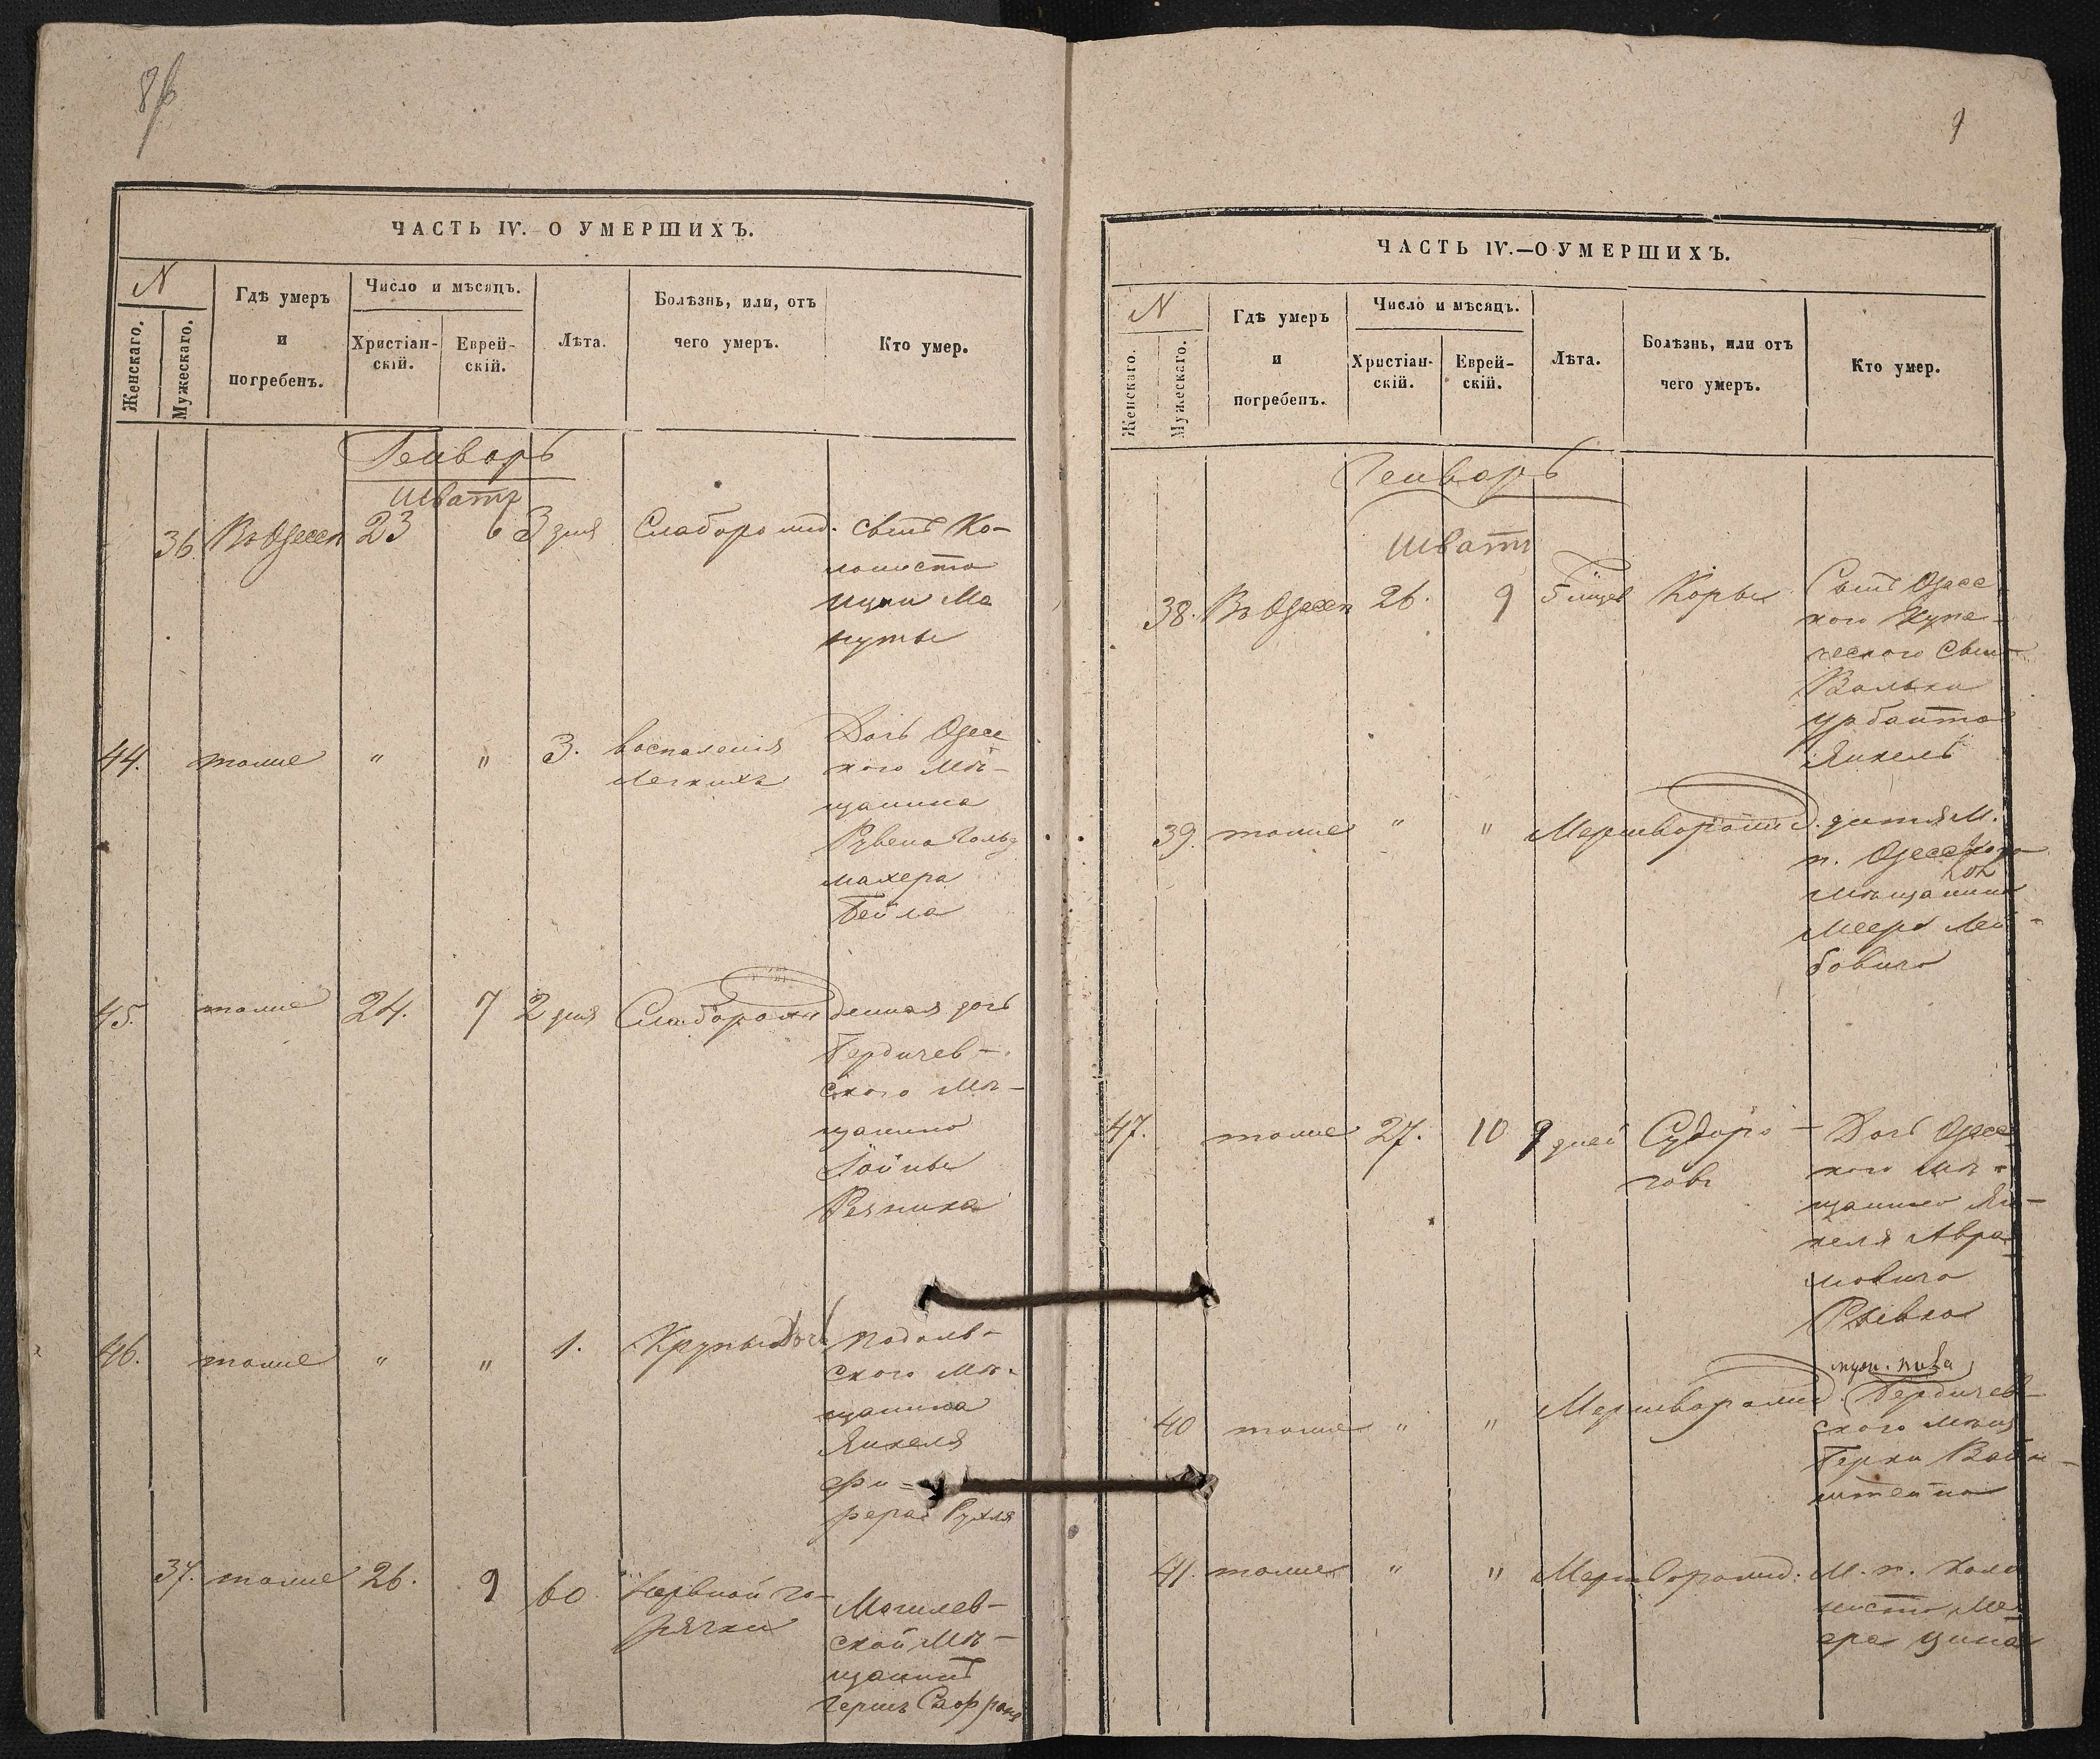 8/b
ЧАСТЬ IV.—О УМЕРШИХЪ.
N
Женскаго.
Мужескаго.
Гдѣ умеръ
и
погребенъ.
Число и мѣсяцъ.
Христіан-
скій.
Еврей-
скій.
Лѣта.
Болѣзнь, или, отъ
чего умеръ.
Кто умер.
Генворь
Шватъ
36. Въ Одессѣ 23 6 3 дня Слаборожд. сынъ Ко-
лониста
Ма
44. тоже " " 3. воспаленія Дочь Одесс
Легкихъ кого мѣ-
щанина
Рувена Гольд
махера
Бейла
45. тоже 24. 7 2 дня Слаборожденная дочь
Бердичев-
ского мѣ-
щанина
Резника
46. тоже " " 1. Крупы Дочь Подоль-
ского мѣ-
щанина
Янкеля
Фи-
рера Рухля
37. тоже 26. 9 60 Нервной го-
рячки Могилев-
ской мѣ-
щанинъ
Гершъ
9
ЧАСТЬ IV.—О УМЕРШИХЪ.
N
Женскаго.
Мужескаго.
Гдѣ умеръ
и
погребенъ.
Число и мѣсяцъ.
Христіан-
скій.
Еврей-
скій.
Лѣта.
Болѣзнь, или отъ
чего умеръ.
Кто умер.
Генворь
Шватъ
38. Въ Одессѣ 26. 9 5 Корьи Сынъ Одесс
кого Купе-
ческого Сына
Вольки
Урбанта
Янкель
39. тоже " " Мертворожд. дитя М.
п. Одесского
мѣщанина
Меера Лей-
бовича
47. тоже 27. 10 9 дней Судоро-
говъ Дочь Одесс
кого мѣ-
щанина Ян-
келя Авра-
мовича
Ривка
муж. пола
40 тоже " " Мертворожд Бердичев-
ского мѣщ
Берки Вайн-
штейна
41. тоже " " Мертворожд. М. п. Коло
ниста Ме
ера Цина